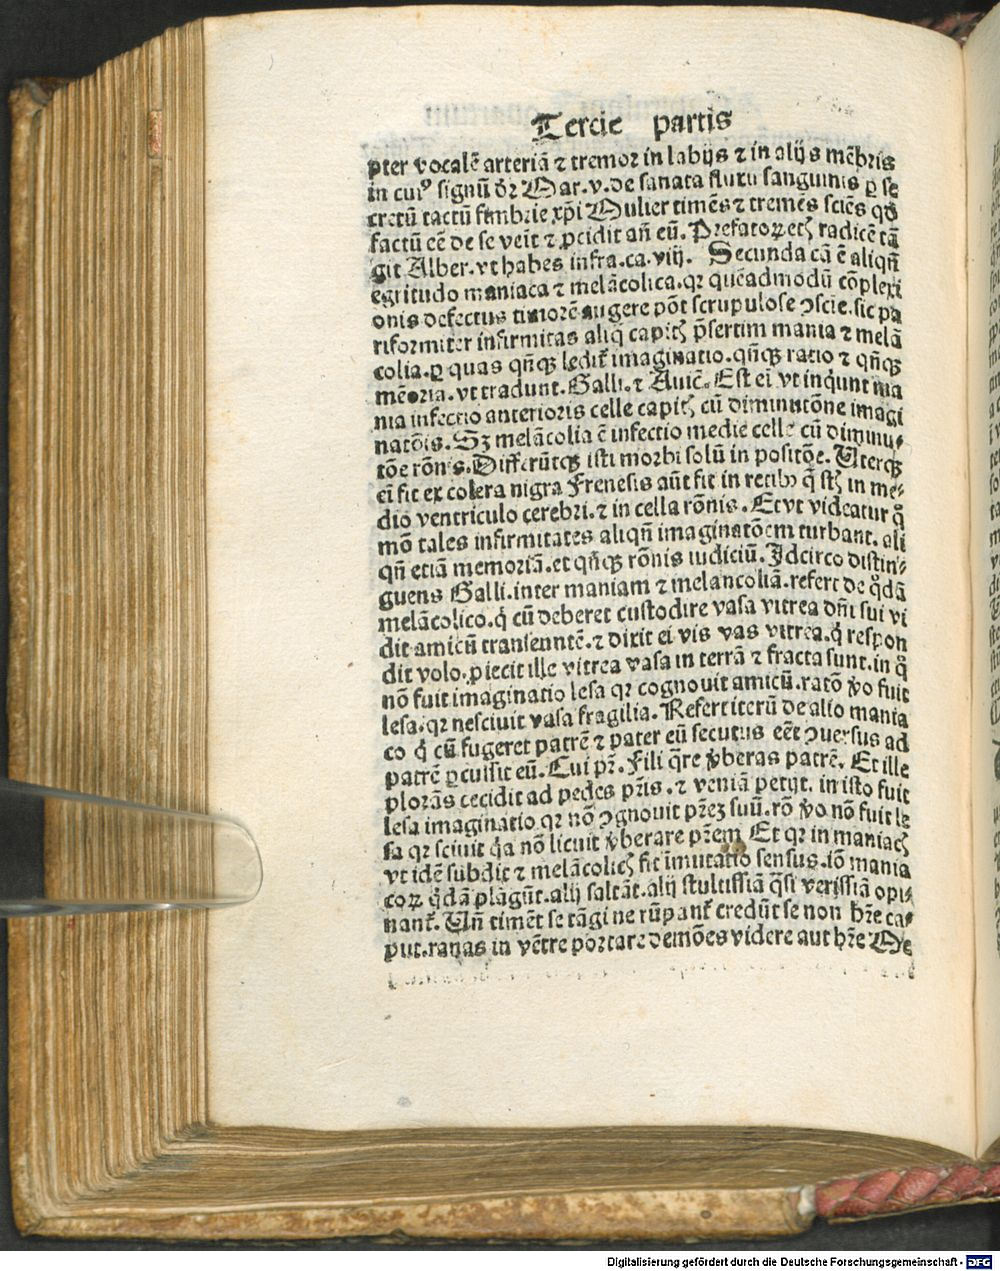 Tercie partis
pter vocalē arteriā ⁊ tremor in labijs ⁊ in alijs mēbris
in cuiꝰ signū dr̄ Mar.v.de sanata fluxu sanguinis ꝑ se
cretū tactū fimbrie xp̄i Mulier timēs ⁊ tremēs sciēs qđ
factū eē de se veīt ⁊ ꝓcidit an̄ eū. Prefatoꝝ etꝫ radicē tā
git Alber.vt habes infra.ca.viij. Secunda cā ē aliqn̄
egritudo maniaca ⁊ melācolica.qꝛ quēadmodū cōplexi
onis defectus timorē augere pōt scrupulose ꝯscie.sic pa
riformiter infirmitas aliq̄ capitꝭ p̄sertim mania ⁊ melā
colia.ꝑ quas qn̄qꝫ ledit᷑ imaginatio.qn̄qꝫ ratio ⁊ qn̄qꝫ
memoria.vt tradunt.Galli.⁊ Auic̄. Est eī vt inq̄unt ma
nia infectio anterioris celle capitꝭ cū diminutōne imagi
natōis.Sꝫ melācolia ē infectio medie celle cū diminu-
tōe rōnis.Differūtqꝫ isti morbi solū in positōe. Uterqꝫ
eī fit ex colera nigra Frenesis aūt fit in retibꝰ q̄ st̄ꝫ in me-
dio ventriculo cerebri.⁊ in cella rōnis. Et vt videatur q̊
mō tales infirmitates aliqn̄ imaginatōem turbant. ali
qn̄ etiā memoriā.et qn̄qꝫ rōnis iudiciū. Idcirco distin-
guens Galli.inter maniam ⁊ melancoliā.refert de q̊dā
melācolico.q̇ cū deberet custodire vasa vitrea dn̄i sui vi
dit amicū transeuntē.⁊ dixit ei vis vas vitrea.q̇ respon
dit volo.ꝓiecit ille vitrea vasa in terrā ⁊ fracta sunt.in q̊
nō fuit imaginatio lesa qꝛ cognouit amicū.ratō v̊o fuit
lesa.qꝛ nesciuit vasa fragilia. Refert iterū de alio mania
co q̇ cū fugeret patrē ⁊ pater eū secutus eēt ꝯuersus ad
patrē ꝑcussit eū. Cui pr̄. Fili q̄re v̓beras patrē. Et ille
plorās cecidit ad pedes pr̄is.⁊ veniā petijt. in isto fuit
lesa imaginatio qꝛ nō ꝯgnouit pr̄eꝫ suū.rō v̊o nō fuit le
sa qꝛ sciuit q̇a nō licuit v̓berare pr̄em Et qꝛ in maniacꝭ
vt idē subdit ⁊ melācolicꝭ fit īmutatio sensus.iō mania
coꝝ q̇dā plāgūt.alij saltāt.alij stultissīa q̄si verissīa opi
nant᷑. Uñ timēt se tāgi ne rūpant᷑ credūt se non hr̄e ca-
put.ranas in vētre portare demōes videre aut hr̄e Me
Digitalisierung gefördert durch die Deutsche Forschungsgemeinschaft - DFG